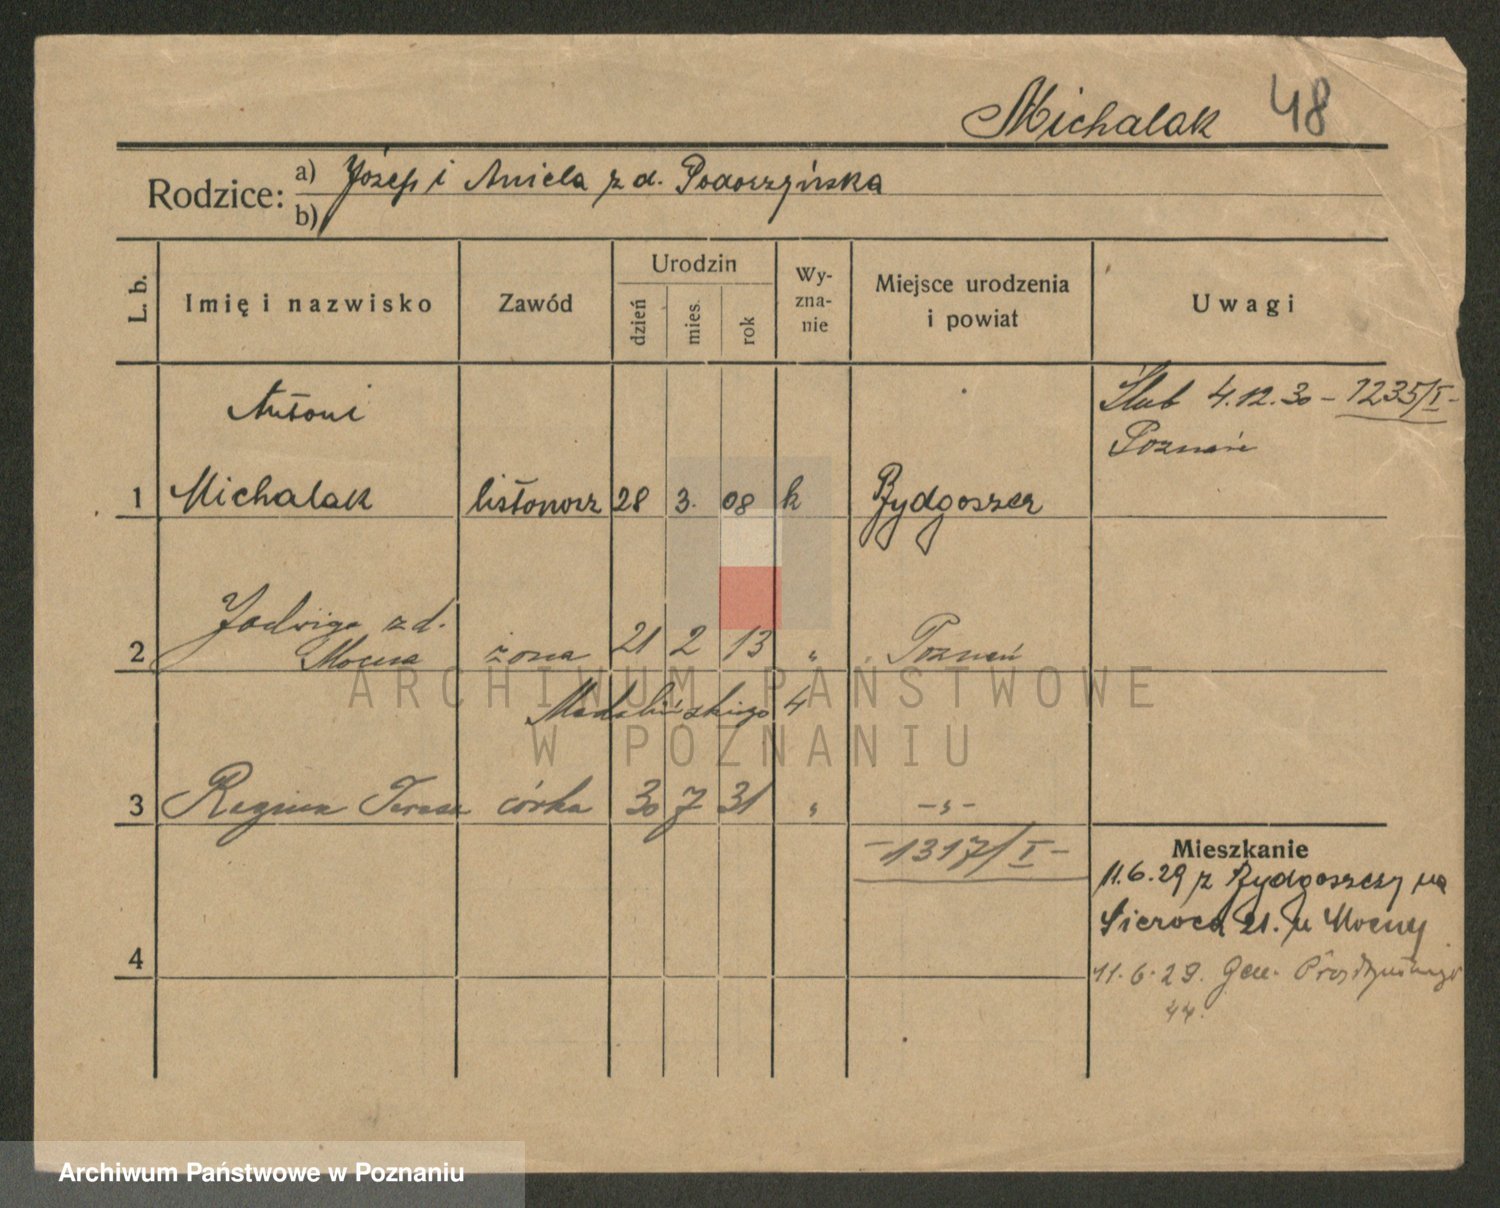 Michalak 48
Rodzice: a) Józef i Aniela z d. Podoszyńska
b)
L. b.
Imię i nazwisko
Zawód
Urodzin
dzień
mies.
rok
Wy-
zna-
nie
Miejsce urodzenia
i powiat
Uwagi
Antoni
1 Michalak listonosz 28 3. 08 k Bydgoszcz
Ślub 4.12.30 – 1235/I –
Poznań
Jadwiga z d.
2 Mocna żona 21 2 13 „ Poznań
Madalińskiego 4
3 Regina Teresa córka 30 7 31 „ – „ –
– 1317/I –
4
Mieszkanie
11.6.29 z Bydgoszczy na
Sieroca 21. u Mocny
11.6.29. Gen. Prądzyńskiego
44.
ARCHIWUM PAŃSTWOWE
W POZNANIU
Archiwum Państwowe w Poznaniu